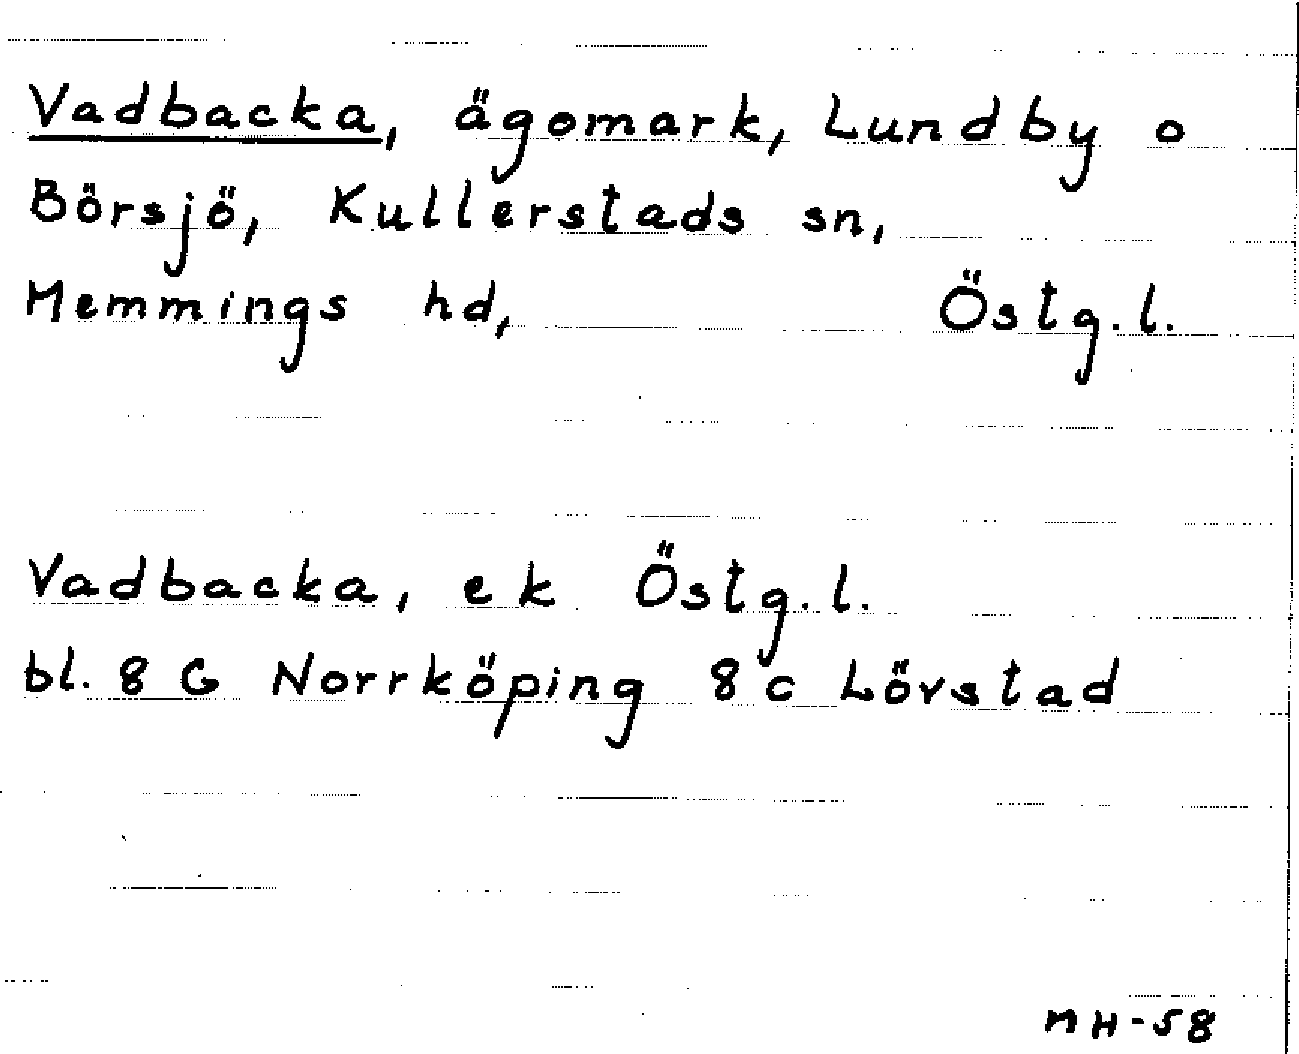 Vadbacka, ägomark, Lundby o
Börsjö, Kullerstads sn,
Memmings hd, Östg.l.
Vadbacka, ek Östg.l.
bl. 8 G Norrköping 8c Lövstad
MH-58